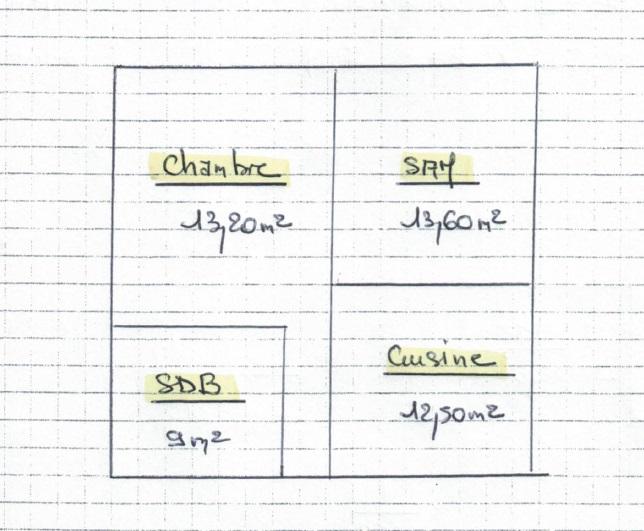 Chambre
13,20m²
SAM
13,60m²
SDB
9m²
Cuisine
12,50m²